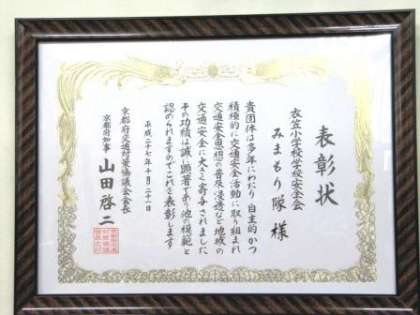 表彰状
衣笠小学校学校安全会
みまもり隊 様
貴団体は多年にわたり自主的かつ
積極的に交通安全活動に取り組まれ
交通安全思想の普及浸透など地域の
交通安全に大きく寄与されました
その功績は誠に顕著であり他の模範と
認められますのでこれを表彰します
平成二十七年十月二十一日
京都府交通対策協議会会長
京都府知事 山田啓二